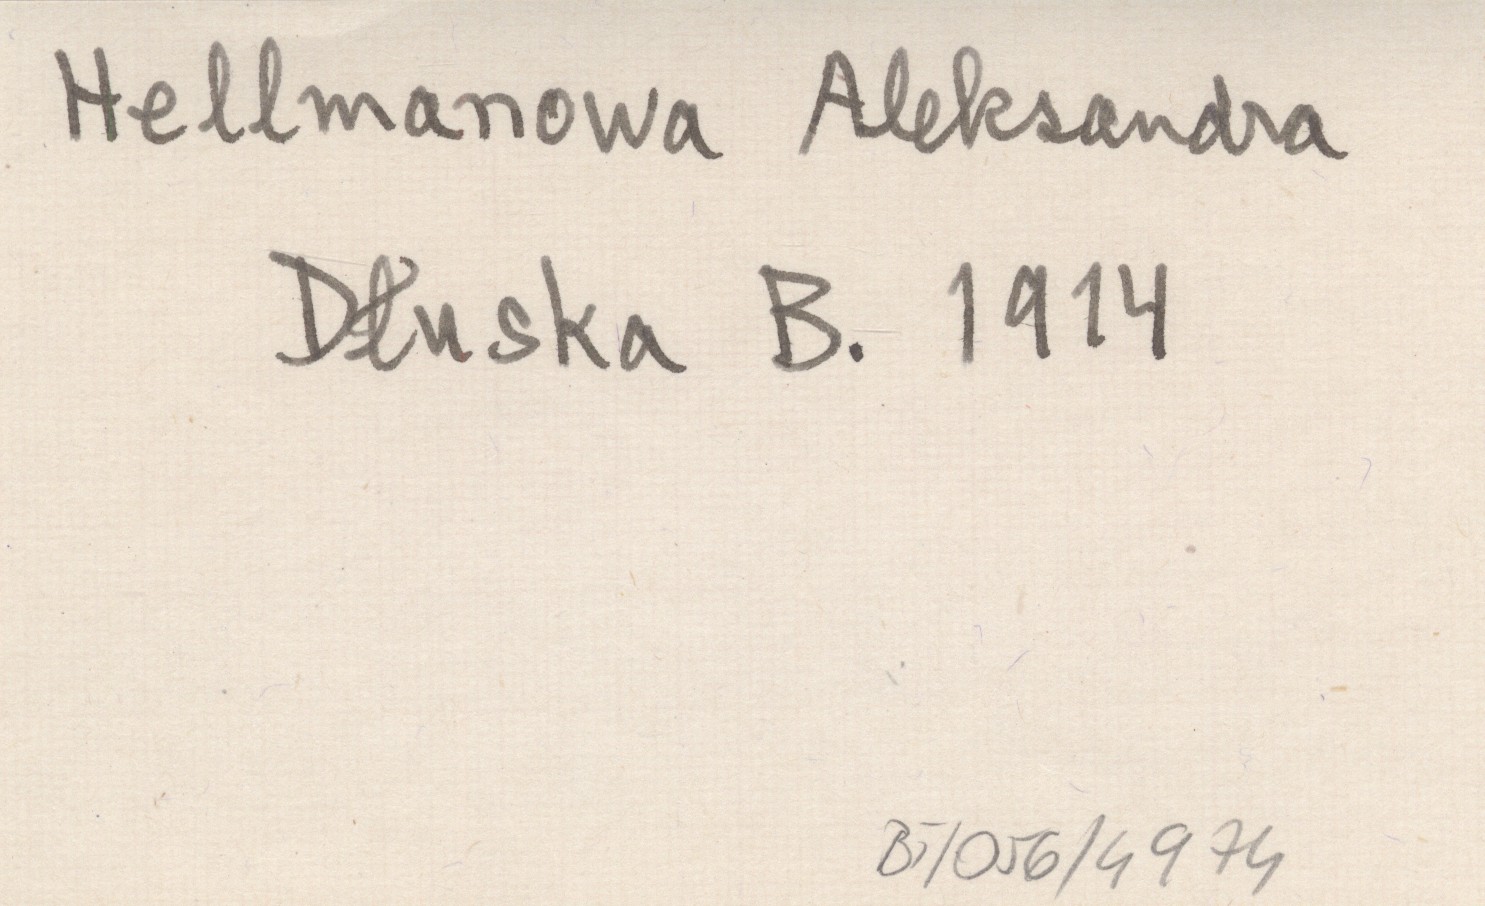 Hellmanowa Aleksandra
Dłuska B. 1914
BJ/056/4974